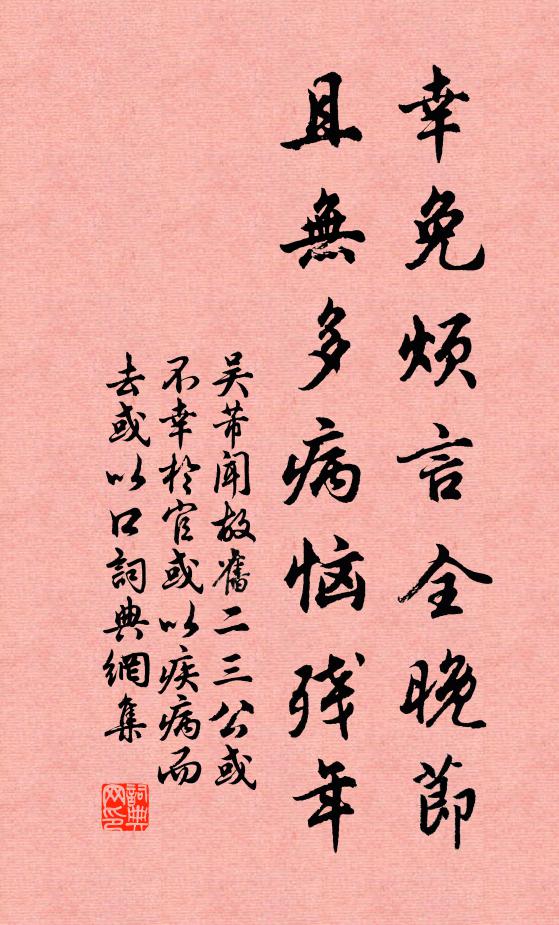 幸免烦言全晚節
且無多病恼残年
吴芾闻故舊二三公或
不幸於官或以疾病而
去或以口詞典網集
詞典
网印